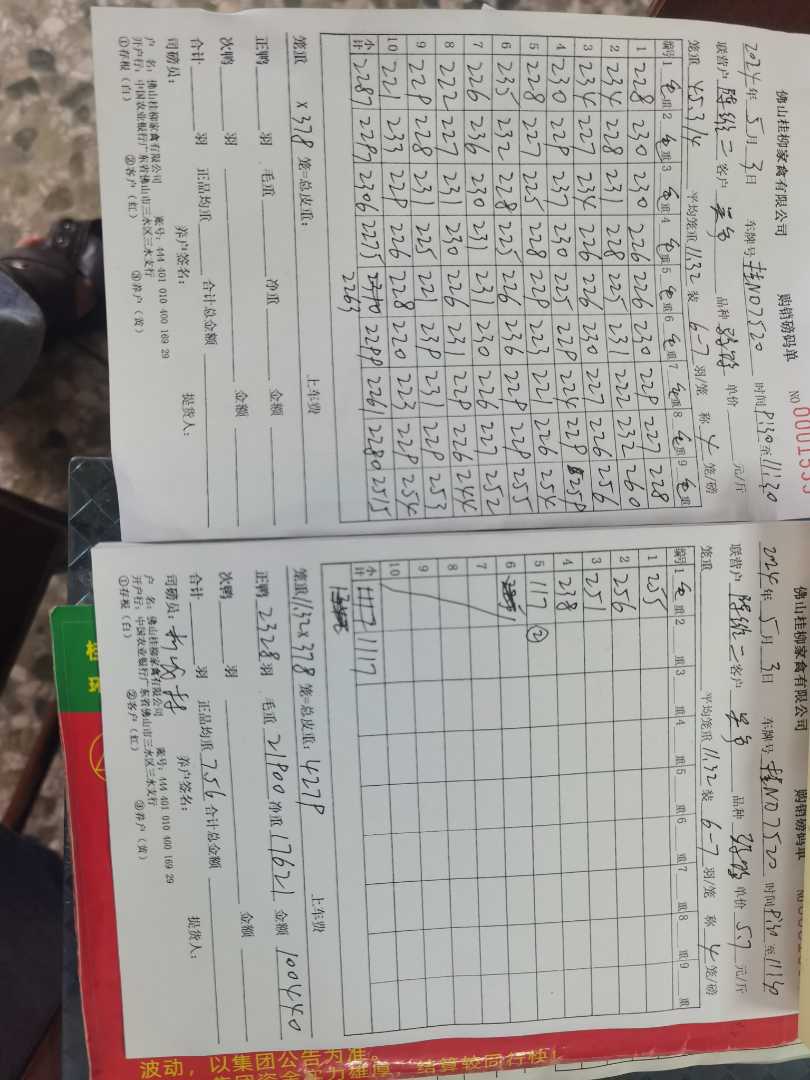 佛山桂柳家禽有限公司 购销磅码单
2024年5月3日 车牌号 桂N07520 时间 9:30 至 11:30
联营户 客户 品种 单价 元/斤
笼重 45.3/4 平均笼重 11.32 装 6-7 羽/笼 称 4 笼/磅
编号 1 毛重 2 毛重 3 毛重 4 毛重 5 毛重 6 毛重 7 毛重 8 毛重 9 毛重
1 228 230 230 226 226 230 229 227 228
2 234 228 231 228 225 231 222 232 260
3 234 227 234 226 226 230 227 226 256
4 230 229 237 230 225 229 224 229 259
5 228 227 225 228 229 223 221 226 254
6 235 232 228 225 226 236 229 229 255
7 226 236 230 231 231 230 226 227 252
8 222 227 231 230 226 231 229 226 244
9 229 228 231 225 221 239 231 229 253
10 221 233 229 226 228 220 223 229 254
小计 2287 2297 2306 2275 2263 2299 2261 2280 2515
笼重 x378 笼=总皮重: 上车费
正鸭 羽 毛重 净重 金额
次鸭 羽 金额
合计 羽 正品均重 合计总金额
司磅员: 养户签名: 提货人:
户 名: 佛山桂柳家禽有限公司 账号: 444 401 010 400 169 29
开户行: 中国农业银行广东省佛山市三水区三水支行
①存根(白) ②客户(红) ③养户(黄)
佛山桂柳家禽有限公司 购销磅码单
2024年5月3日 车牌号 桂N07520 时间 9:30 至 11:30
联营户 客户 品种 单价 5.7 元/斤
笼重 平均笼重 11.32 装 6-7 羽/笼 称 4 笼/磅
编号 1 毛重 2 重 3 重 4 重 5 重 6 重 7 重 8 重 9 重
1 255
2 256
3 251
4 238
5 117 ②
6
7
8
9
10
小计 1117 1117
笼重 11.32x378 笼=总皮重: 4279 上车费
正鸭 2328 羽 毛重 21900 净重 17621 金额 100440
次鸭 羽 金额
合计 羽 正品均重 7.56 合计总金额
司磅员: 养户签名: 提货人:
户 名: 佛山桂柳家禽有限公司 账号: 444 401 010 400 169 29
开户行: 中国农业银行广东省佛山市三水区三水支行
①存根(白) ②客户(红) ③养户(黄)
波动，以集团公告为准。